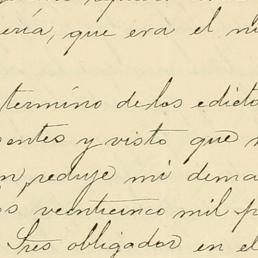 ería, que era el
término de los edicto
entes y visto que
reduje mi dema
os veinticinco mil p
Tres obligador en el